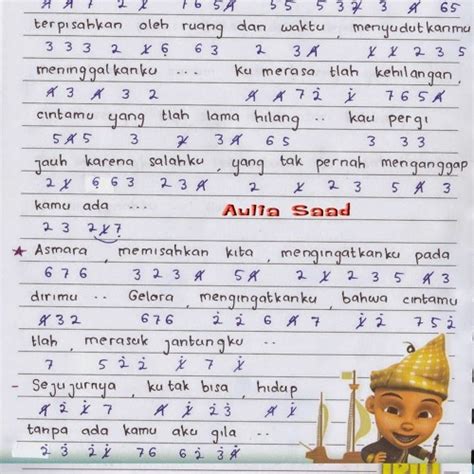 terpisahkan oleh ruang dan waktu, menyudutkanmu
3 3 3 2 1 6 6 3 2 3 4 1 1 2 3 5
meninggalkanku ... ku merasa tlah kehilangan,
4 3 4 3 2 4 4 7 2 1 7 6 5 4
cintamu yang tlah lama hilang .. kau pergi
5 4 5 3 2 3 4 6 5 3 3 3
jauh karena salahku, yang tak pernah menganggap
2 1 6 6 3 2 3 4 2 1 2 3 5 4 3
kamu ada ... Aulia Saad
2 3 2 1 7
★ Asmara, memisahkan kita, mengingatkanku pada
6 7 6 3 2 3 4 5 4 2 1 2 3 5 4 3
dirimu .. Gelora, mengingatkanku, bahwa cintamu
4 3 2 6 7 6 2 2 6 4 7 1 2 7 5 2
tlah, merasuk jantungku ..
7 5 2 2 1 7 1
- Sejujurnya, ku tak bisa, hidup
4 2 1 7 4 1 2 3 4 1
tanpa ada kamu aku gila ..
2 3 2 1 7 6 6 2 3 4